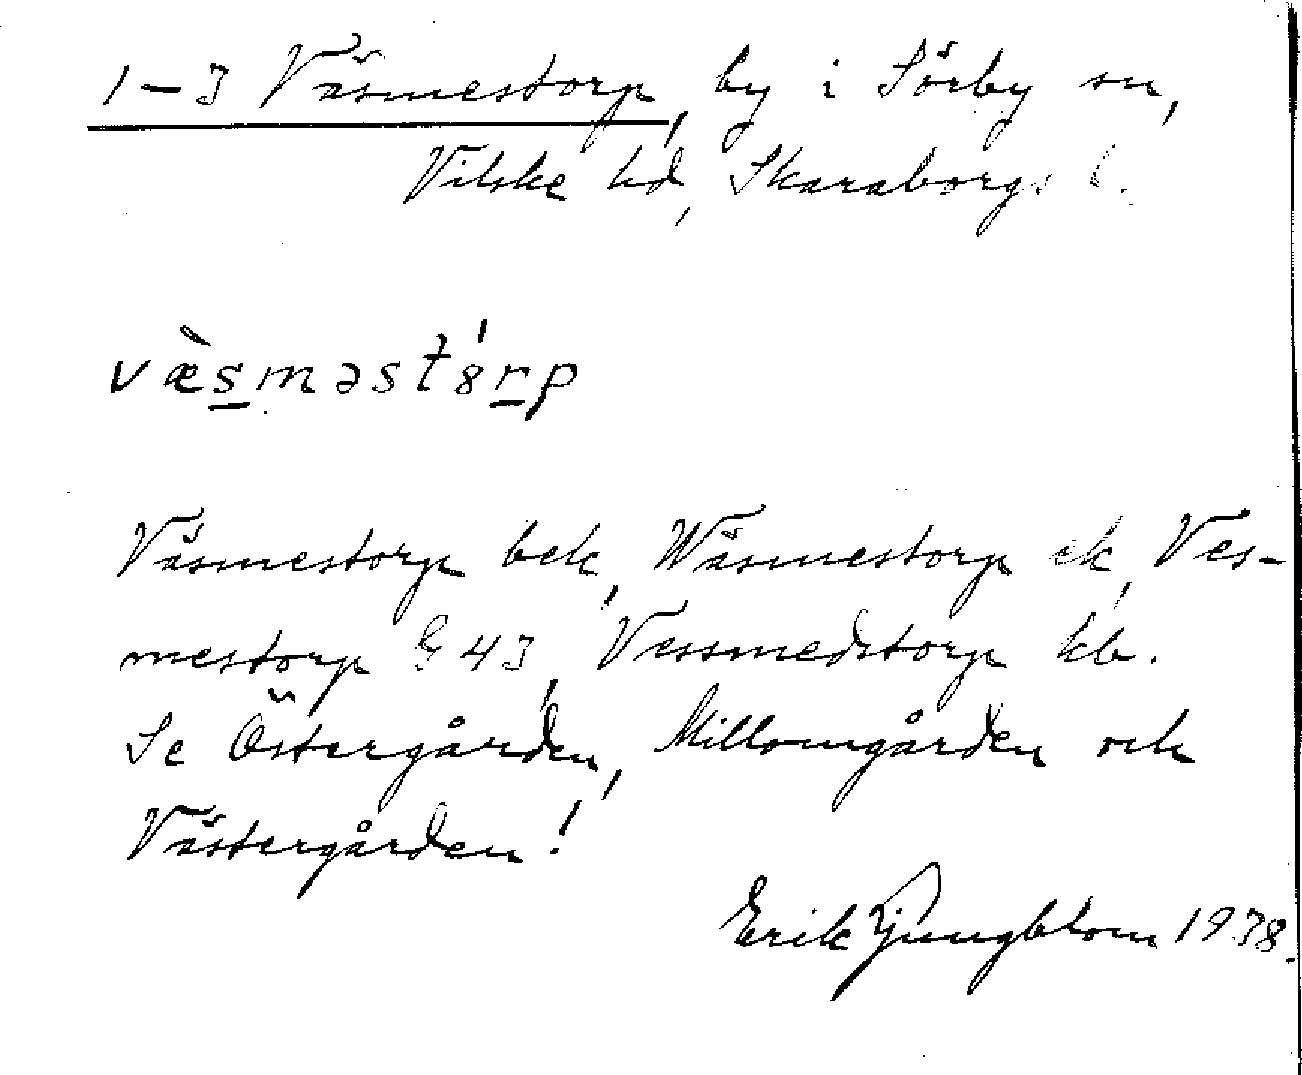 1-3 Väsmestorp, by i Sörby sn,
Vilske hd, Skaraborgs l.
væ̀s̲məst8́r̲p
Väsmestorp bek, Wäsmestorp ek, Ves-
mestorp G 43, Vessmedstorp kb.
Se Östergården, Millomgården och
Västergården!
Erik Ljungblom 1938.